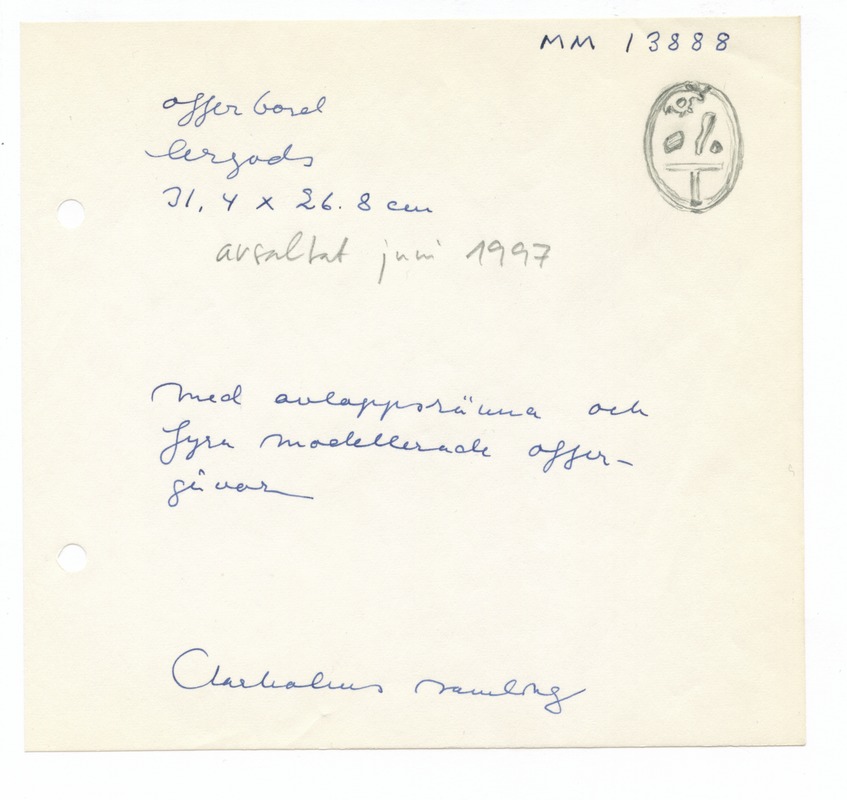 MM 13888
offerbord
lergods
31,4 x 26.8 cm
avsaltat juni 1997
med avloppsränna och
fyra modellerade offer-
gåvor
samling